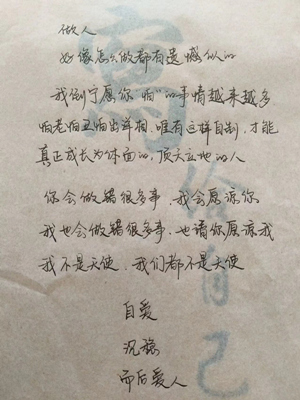 做人
好像怎么做都有遗憾似的
我倒宁愿你“怕”的事情越来越多
怕老怕丑怕出洋相.唯有这样自制.才能
真正成长为体面的.顶天立地的人
你会做错很多事.我会原谅你
我也会做错很多事.也请你原谅我
我不是天使.我们都不是天使
自爱
沉稳
而后爱人
自己